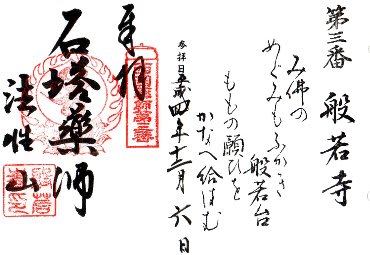 第三番 般若寺
み佛の
めぐみもふかき
般若台
ももの願ひを
かなへ給はむ
参拝日平成四年十二月六日
奉拝
石塔薬師
法性山